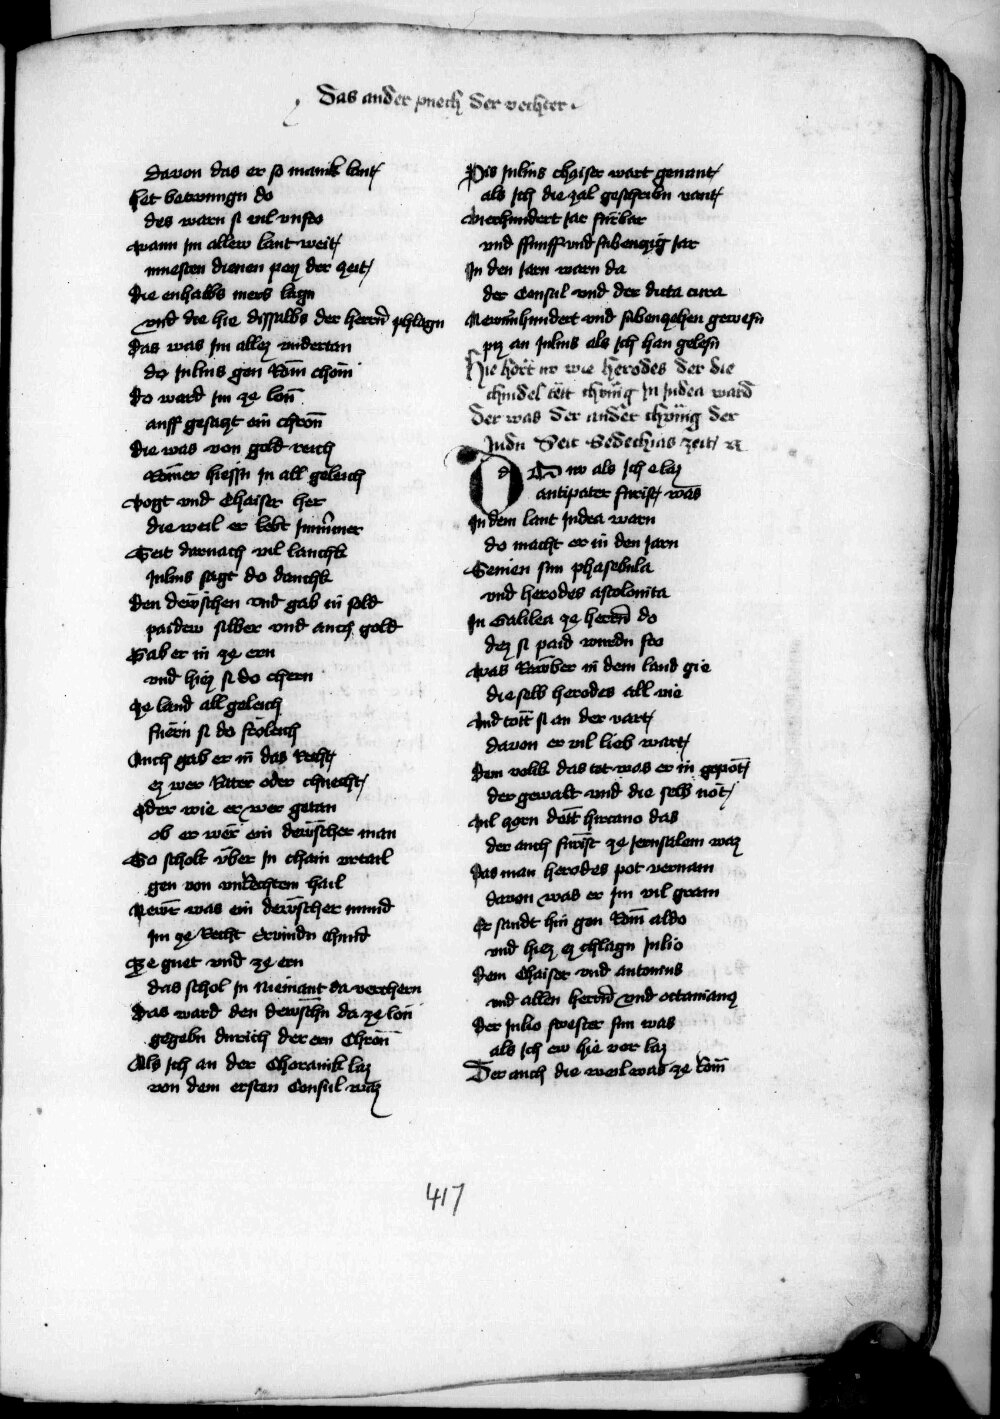 Das ander puech Der vechter
Davon das er so manik lant
het betwungn do
des warn si vil unfro
wann im allew lant weit
muesten dienen pey der zeit
Die enhalbs mers lagn
und die hie dissalbs der herrn phlagn
Das was im allez undertan
do Julius gen Rom chom
Do ward im ze lon
auff gesatzt ein chron
Die was von gold reich
Römer hiessn in all geleich
Vogt und Chaiser her
die weil er lebt immer
Seit darnach vil lanchk
Julius sagt do danchk
Den dewschen und gab in sold
paidew silber und auch gold
Gab er in ze ern
und hiez si do chern
Ze land all geleich
fuern si do froleich
Auch gab er in das Recht
ez wer Ritter oder chnecht
Oder wie er wer getan
ob er wer ein dewscher man
So scholt über in chain urtail
gen von unrechtem hail
Newr was ein dewscher mund
im ze Recht ervindn chund
Ze guet und ze ern
das schol in niemant da verchern
Das ward den dewschn da ze lon
gegebn durich der ern Chron
Als ich an der Choranik laz
von dem ersten Consul waz
Pis Julius chaiser wart genant
als ich die zal geschribn vant
Vierhundert jar fürbar
und ffunff und sibenzig jar
In den jarn warn da
der Consul und der dictatura
Newnhundert und sibenzehen gewesn
piz an Julius als ich han gelesn
Hie hört wie Herodes der die
chindel tött chünig in Judea ward
Der was der ander chünig der
Judn Seit Sedechias zeit
Do nw als ich e laz
antipater fürist was
In dem lant Judea warn
do macht er in den jarn
Seinen sun phasebula
und herodes ascolonita
In Galilea ze herrn do
dez si paid wurdn fro
Was Rauber in dem land gie
die selb herodes all vie
Und tött si an der vart
davon er vil lieb wart
Dem volk das tet was er in gepot
der gewalt und die selb not
Vil zorn dött hircano das
der auch fürist ze Jerusalem waz
Das man herodes pot vernam
davon was er im vil gram
Er sandt hin gen Rom aldo
und hiez ez chlagn Julio
Dem Chaiser und antonius
und allen herrn und octavianus
Der Julio swester sun was
als ich ew hie vor laz
Der auch die weil was ze Rom
417